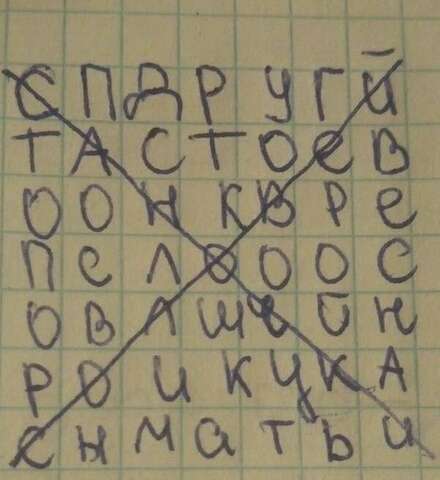 С П Д Р У Г Й
Т А С Т О Е В
О О Н К В Р Е
П Е Л О О О С
О В Л Ш Ч Й Н
Р О И К Ц К А
С Ы М А Т Ь И